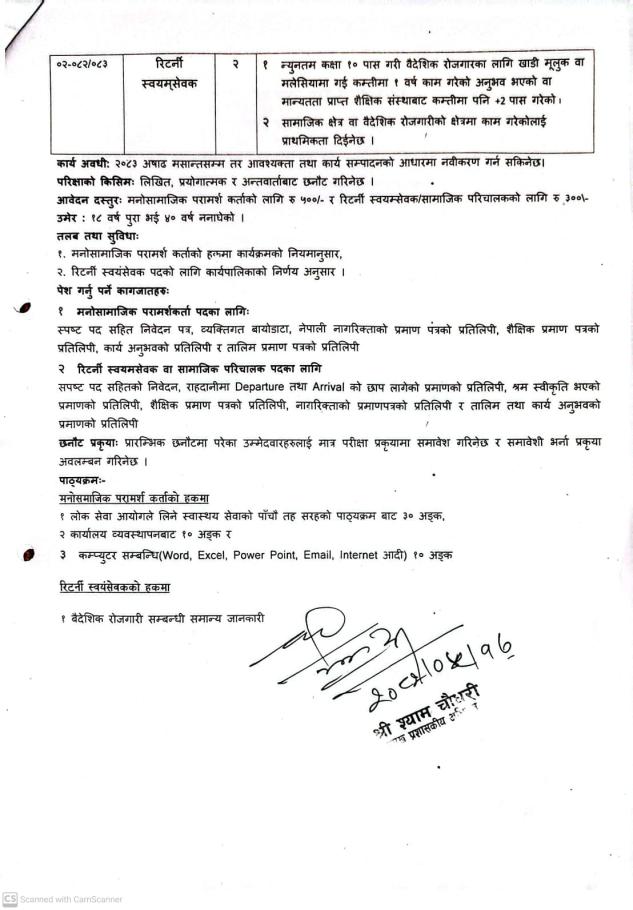 ०२-०८२/०८३
रिटर्नी
स्वयम्सेवक
२
१ न्युनतम कक्षा १० पास गरी वैदेशिक रोजगारका लागि खाडी मूलुक वा
मलेसियामा गई कम्तीमा १ वर्ष काम गरेको अनुभव भएको वा
मान्यतता प्राप्त शैक्षिक संस्थाबाट कम्तीमा पनि +2 पास गरेको।
२ सामाजिक क्षेत्र वा वैदेशिक रोजगारीको क्षेत्रमा काम गरेकोलाई
प्राथमिकता दिईनेछ ।
कार्य अवधी: २०८३ अषाढ मसान्तसम्म तर आवश्यक्ता तथा कार्य सम्पादनको आधारमा नवीकरण गर्न सकिनेछ।
परिक्षाको किसिम: लिखित, प्रयोगात्मक र अन्तवार्ताबाट छनौट गरिनेछ ।
आवेदन दस्तुर: मनोसामाजिक परामर्श कर्ताको लागि रु ५००/- र रिटर्नी स्वयमसेवक/सामाजिक परिचालकको लागि रु ३००\-
उमेर : १८ वर्ष पुरा भई ४० वर्ष ननाघेको ।
तलब तथा सुविधा:
१. मनोसामाजिक परामर्श कर्ताको हकमा कार्यक्रमको नियमानुसार,
२. रिटर्नी स्वयंसेवक पदको लागि कार्यपालिकाको निर्णय अनुसार ।
पेश गर्नु पर्ने कागजातहरु:
१ मनोसामाजिक परामर्शकर्ता पदका लागि:
स्पष्ट पद सहित निवेदन पत्र, व्यक्तिगत बायोडाटा, नेपाली नागरिक्ताको प्रमाण पत्रको प्रतिलिपी, शैक्षिक प्रमाण पत्रको
प्रतिलिपी, कार्य अनुभवको प्रतिलिपी र तालिम प्रमाण पत्रको प्रतिलिपी
२ रिटर्नी स्वयमसेवक वा सामाजिक परिचालक पदका लागि
सपष्ट पद सहितको निवेदन, राहदानीमा Departure तथा Arrival को छाप लागेको प्रमाणको प्रतिलिपी, श्रम स्वीकृति भएको
प्रमाणको प्रतिलिपी, शैक्षिक प्रमाण पत्रको प्रतिलिपी, नागरिक्ताको प्रमाणपत्रको प्रतिलिपी र तालिम तथा कार्य अनुभवको
प्रमाणको प्रतिलिपी
छनौट प्रकृया: प्रारम्भिक छनौटमा परेका उम्मेदवारहरुलाई मात्र परीक्षा प्रकृयामा समावेश गरिनेछ र समावेशी भर्ना प्रकृया
अवलम्बन गरिनेछ ।
पाठ्यक्रम:-
मनोसमाजिक परामर्श कर्ताको हकमा
१ लोक सेवा आयोगले लिने स्वास्थय सेवाको पाँचौ तह सरहको पाठ्यक्रम बाट ३० अङ्क,
२ कार्यालय व्यवस्थापनबाट १० अङ्क र
३ कम्प्युटर सम्बन्धि(Word, Excel, Power Point, Email, Internet आदी) १० अङ्क
रिटर्नी स्वयंसेवकको हकमा
१ वैदेशिक रोजगारी सम्बन्धी समान्य जानकारी
श्री श्याम चौधरी
प्रशासकीय
CS Scanned with CamScanner